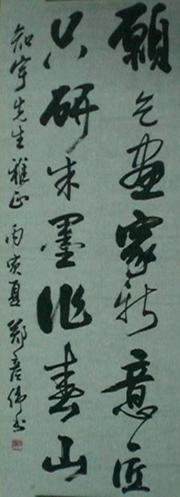 願乞畫家新意匠
只研朱墨作春山
先生雅正 丙寅夏 鄭彥偉書